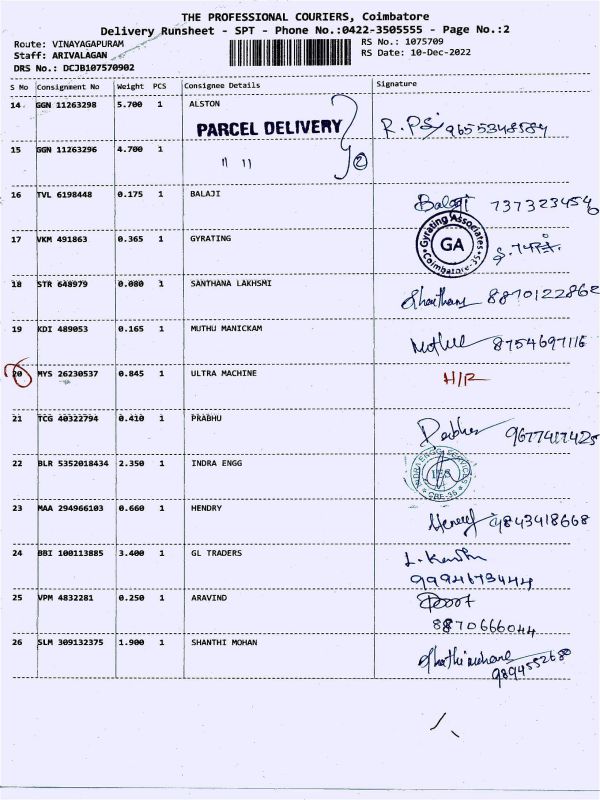 THE PROFESSIONAL COURIERS, Coimbatore
Delivery Runsheet - SPT - Phone No.:0422-3505555 - Page No.:2
Route: VINAYAGAPURAM RS No.: 1075709
Staff: ARIVALAGAN RS Date: 10-Dec-2022
DRS No.: DCJB107570902
S No Consignment No Weight PCS Consignee Details Signature
14 GGN 11263298 5.700 1 ALSTON
PARCEL DELIVERY 2 9655348584
15 GGN 11263296 4.700 1 " "
16 TVL 6198448 0.175 1 BALAJI Balaji 7373234546
17 VKM 491863 0.365 1 GYRATING Gyrating Associates GA Coimbatore-35
18 STR 648979 0.080 1 SANTHANA LAKHSMI 8870122862
19 KDI 489053 0.165 1 MUTHU MANICKAM 8754697116
20 MYS 26230537 0.845 1 ULTRA MACHINE H/R
21 TCG 40322794 0.410 1 PRABHU 9677417425
22 BLR 5352018434 2.350 1 INDRA ENGG INDRA ENGG SERVICES IES CBE-35
23 MAA 294966103 0.660 1 HENDRY 9843418668
24 BBI 100113885 3.400 1 GL TRADERS
9994673444
25 VPM 4832281 0.250 1 ARAVIND
8870666044
26 SLM 309132375 1.900 1 SHANTHI MOHAN
9894552680